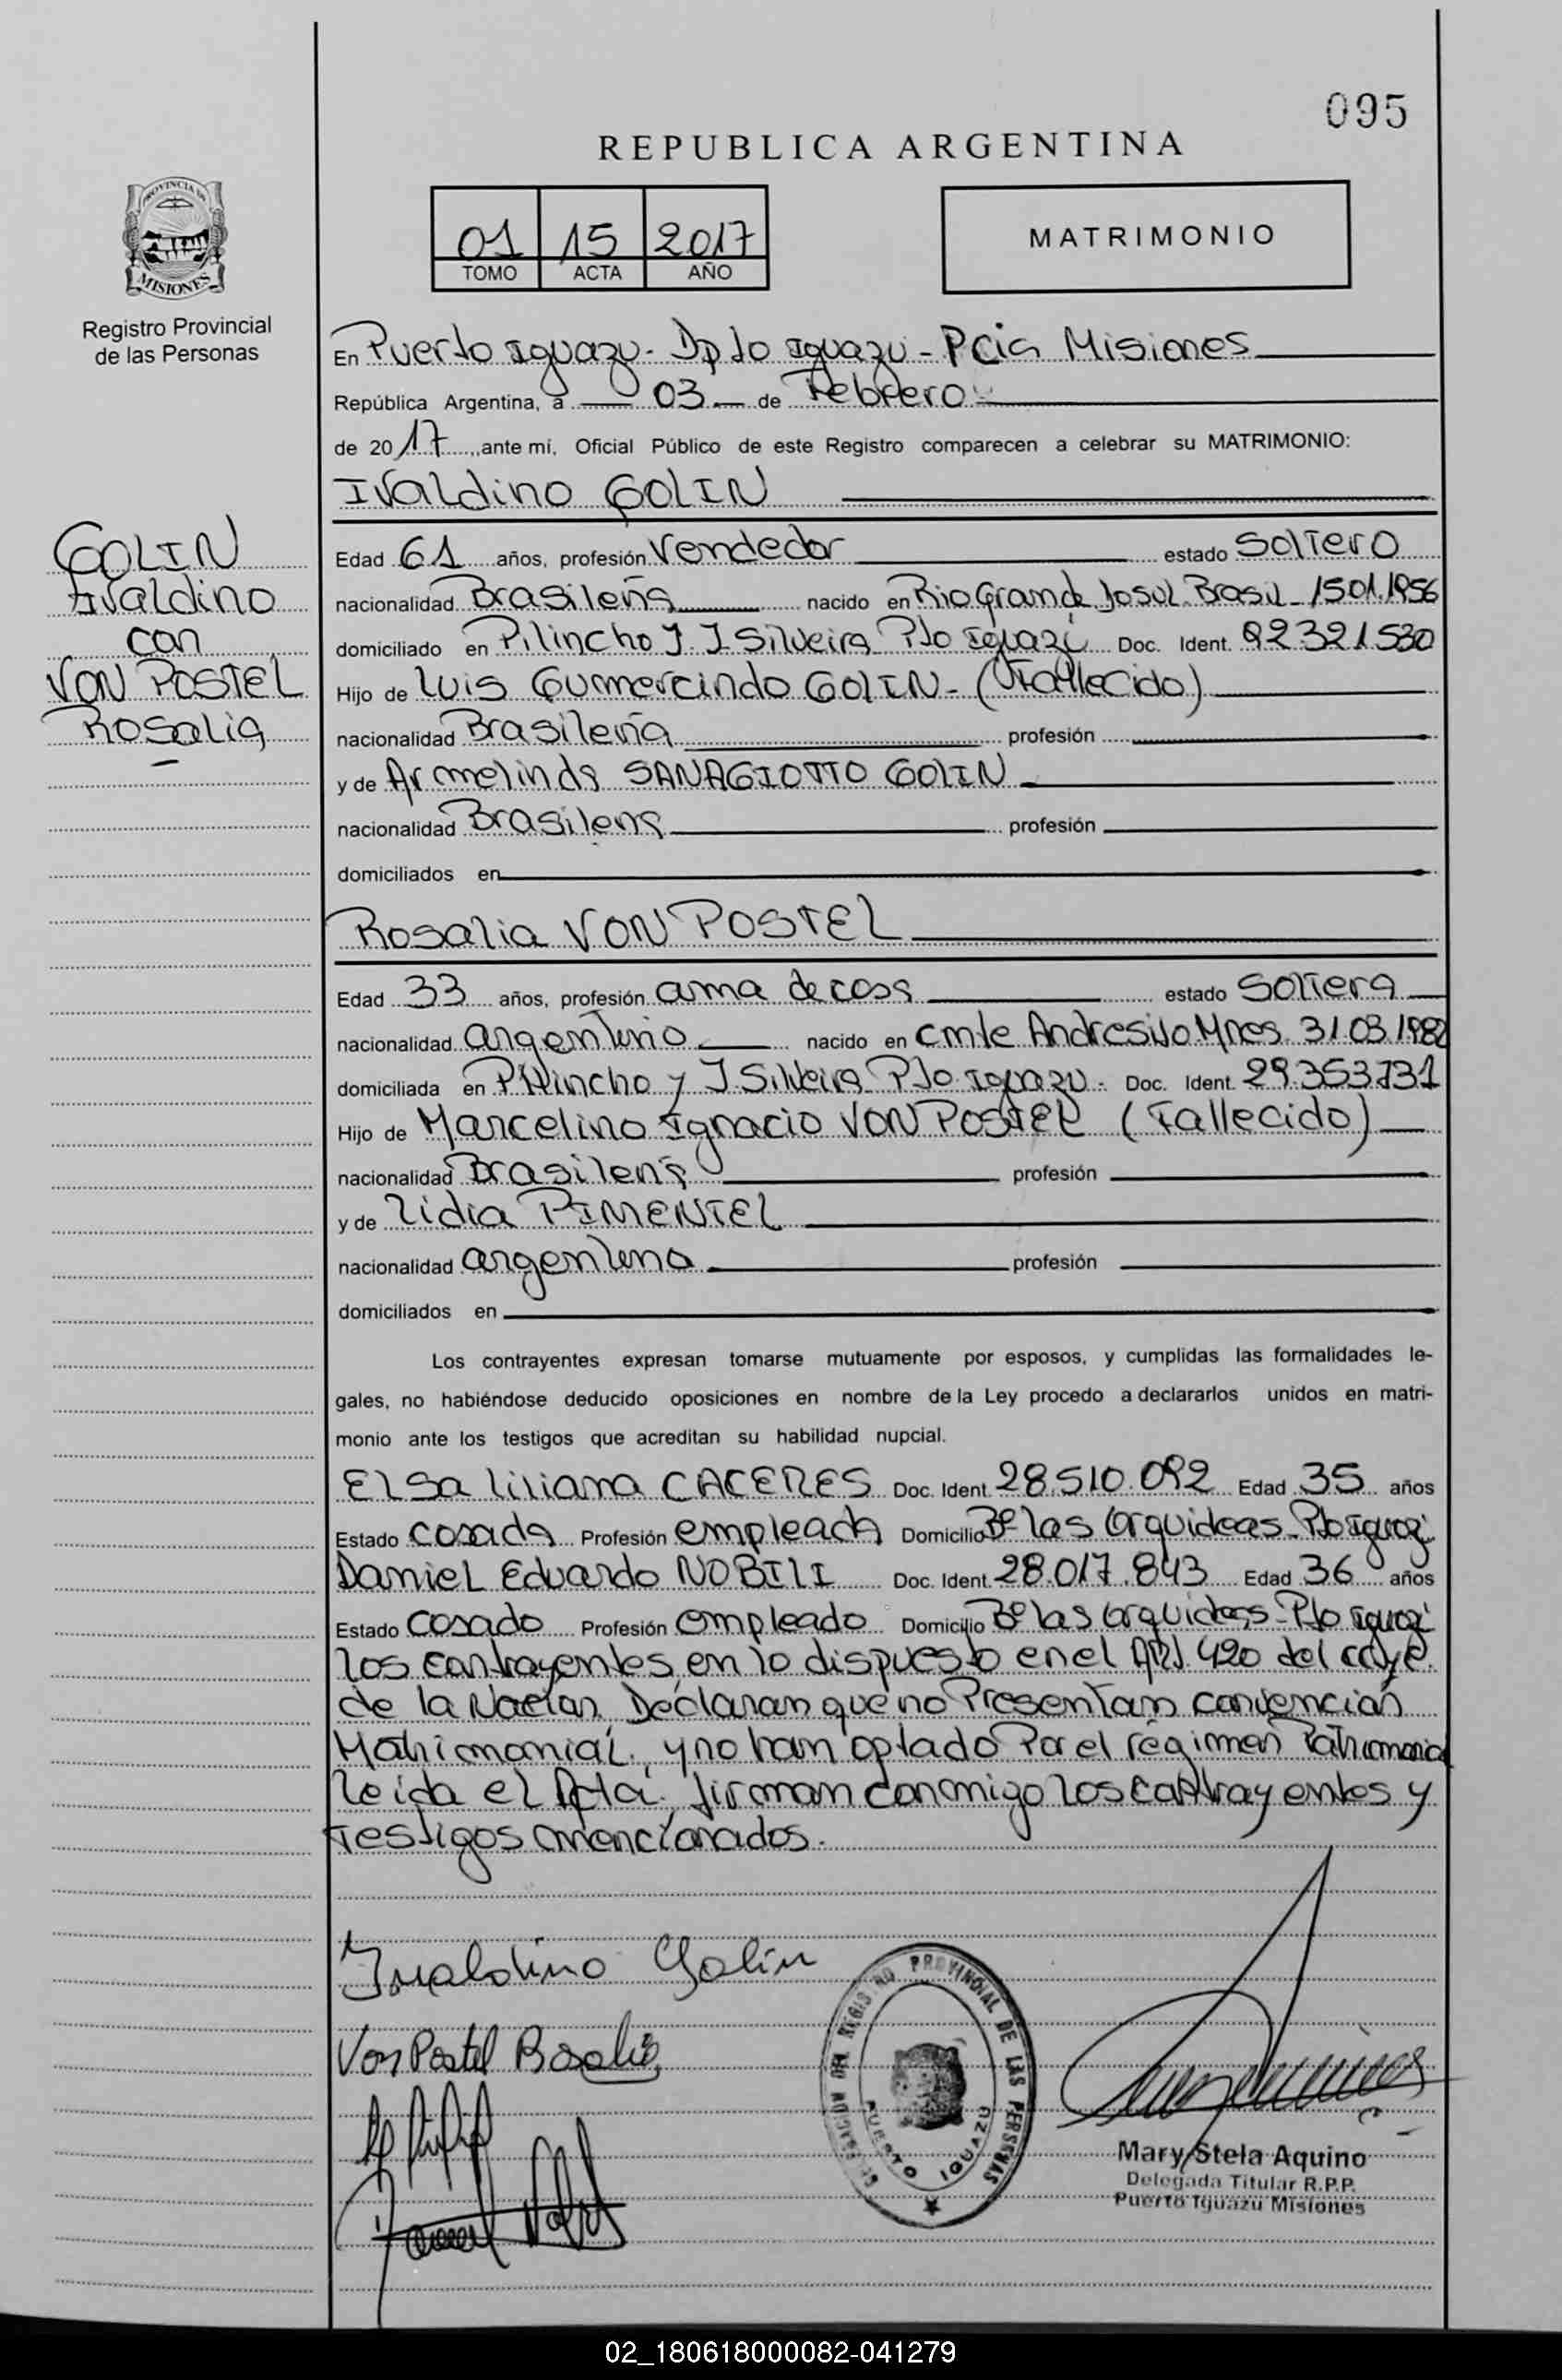 095
REPUBLICA ARGENTINA
01 15 2017
TOMO ACTA AÑO
MATRIMONIO
PROVINCIA DE
MISIONES
Registro Provincial
de las Personas
GOLIN
Ivaldino
con
VON POSTEL
Rosalia
En Puerto Iguazu - Dpto Iguazu - Pcia Misiones
República Argentina, a 03 de Febrero
de 2017, ante mí, Oficial Público de este Registro comparecen a celebrar su MATRIMONIO:
Ivaldino GOLIN
Edad 61 años, profesión Vendedor estado Soltero
nacionalidad Brasileña nacido en Rio Grande Do Sul Brasil - 15.01.1956
domiciliado en Pilincho y J. Silveira Pto Iguazú Doc. Ident. 92321530
Hijo de Luis Gumercindo GOLIN - (Fallecido)
nacionalidad Brasileña profesión
y de Armelinda SANAGIOTTO GOLIN
nacionalidad Brasilena profesión
domiciliados en
Rosalia VON POSTEL
Edad 33 años, profesión ama de casa estado Soltera
nacionalidad argentina nacido en Cmte Andresito Mnes. 31.03.1982
domiciliada en Pilincho y J. Silveira Pto Iguazu - Doc. Ident. 29.353.731
Hijo de Marcelino Ignacio VON POSTEL (Fallecido)
nacionalidad Brasilena profesión
y de Lidia PIMENTEL
nacionalidad argentina profesión
domiciliados en
Los contrayentes expresan tomarse mutuamente por esposos, y cumplidas las formalidades le-
gales, no habiéndose deducido oposiciones en nombre de la Ley procedo a declararlos unidos en matri-
monio ante los testigos que acreditan su habilidad nupcial.
Elsa Liliana CACERES Doc. Ident. 28.510.092 Edad 35 años
Estado Casada Profesión empleada Domicilio Bº las Orquideas - Pto Iguazú
Daniel Eduardo NOBILI Doc. Ident. 28.017.843 Edad 36 años
Estado Casado Profesión empleado Domicilio Bº las Orquideas - Pto Iguazú
Los contrayentes, en lo dispuesto en el Art 420 del
de la Nación, Declaran que no Presentan convención
Matrimonial, y no han optado Por el régimen Patrimonial
Leida el Acta, firman conmigo los contrayentes y
Testigos mencionados.
Ivaldino Golin
Von Postel Rosalia
DELEGACION DEL REGISTRO PROVINCIAL DE LAS PERSONAS
PUERTO IGUAZU
Mary Stela Aquino
Delegada Titular R.P.P.
Puerto Iguazú Misiones
02_180618000082-041279